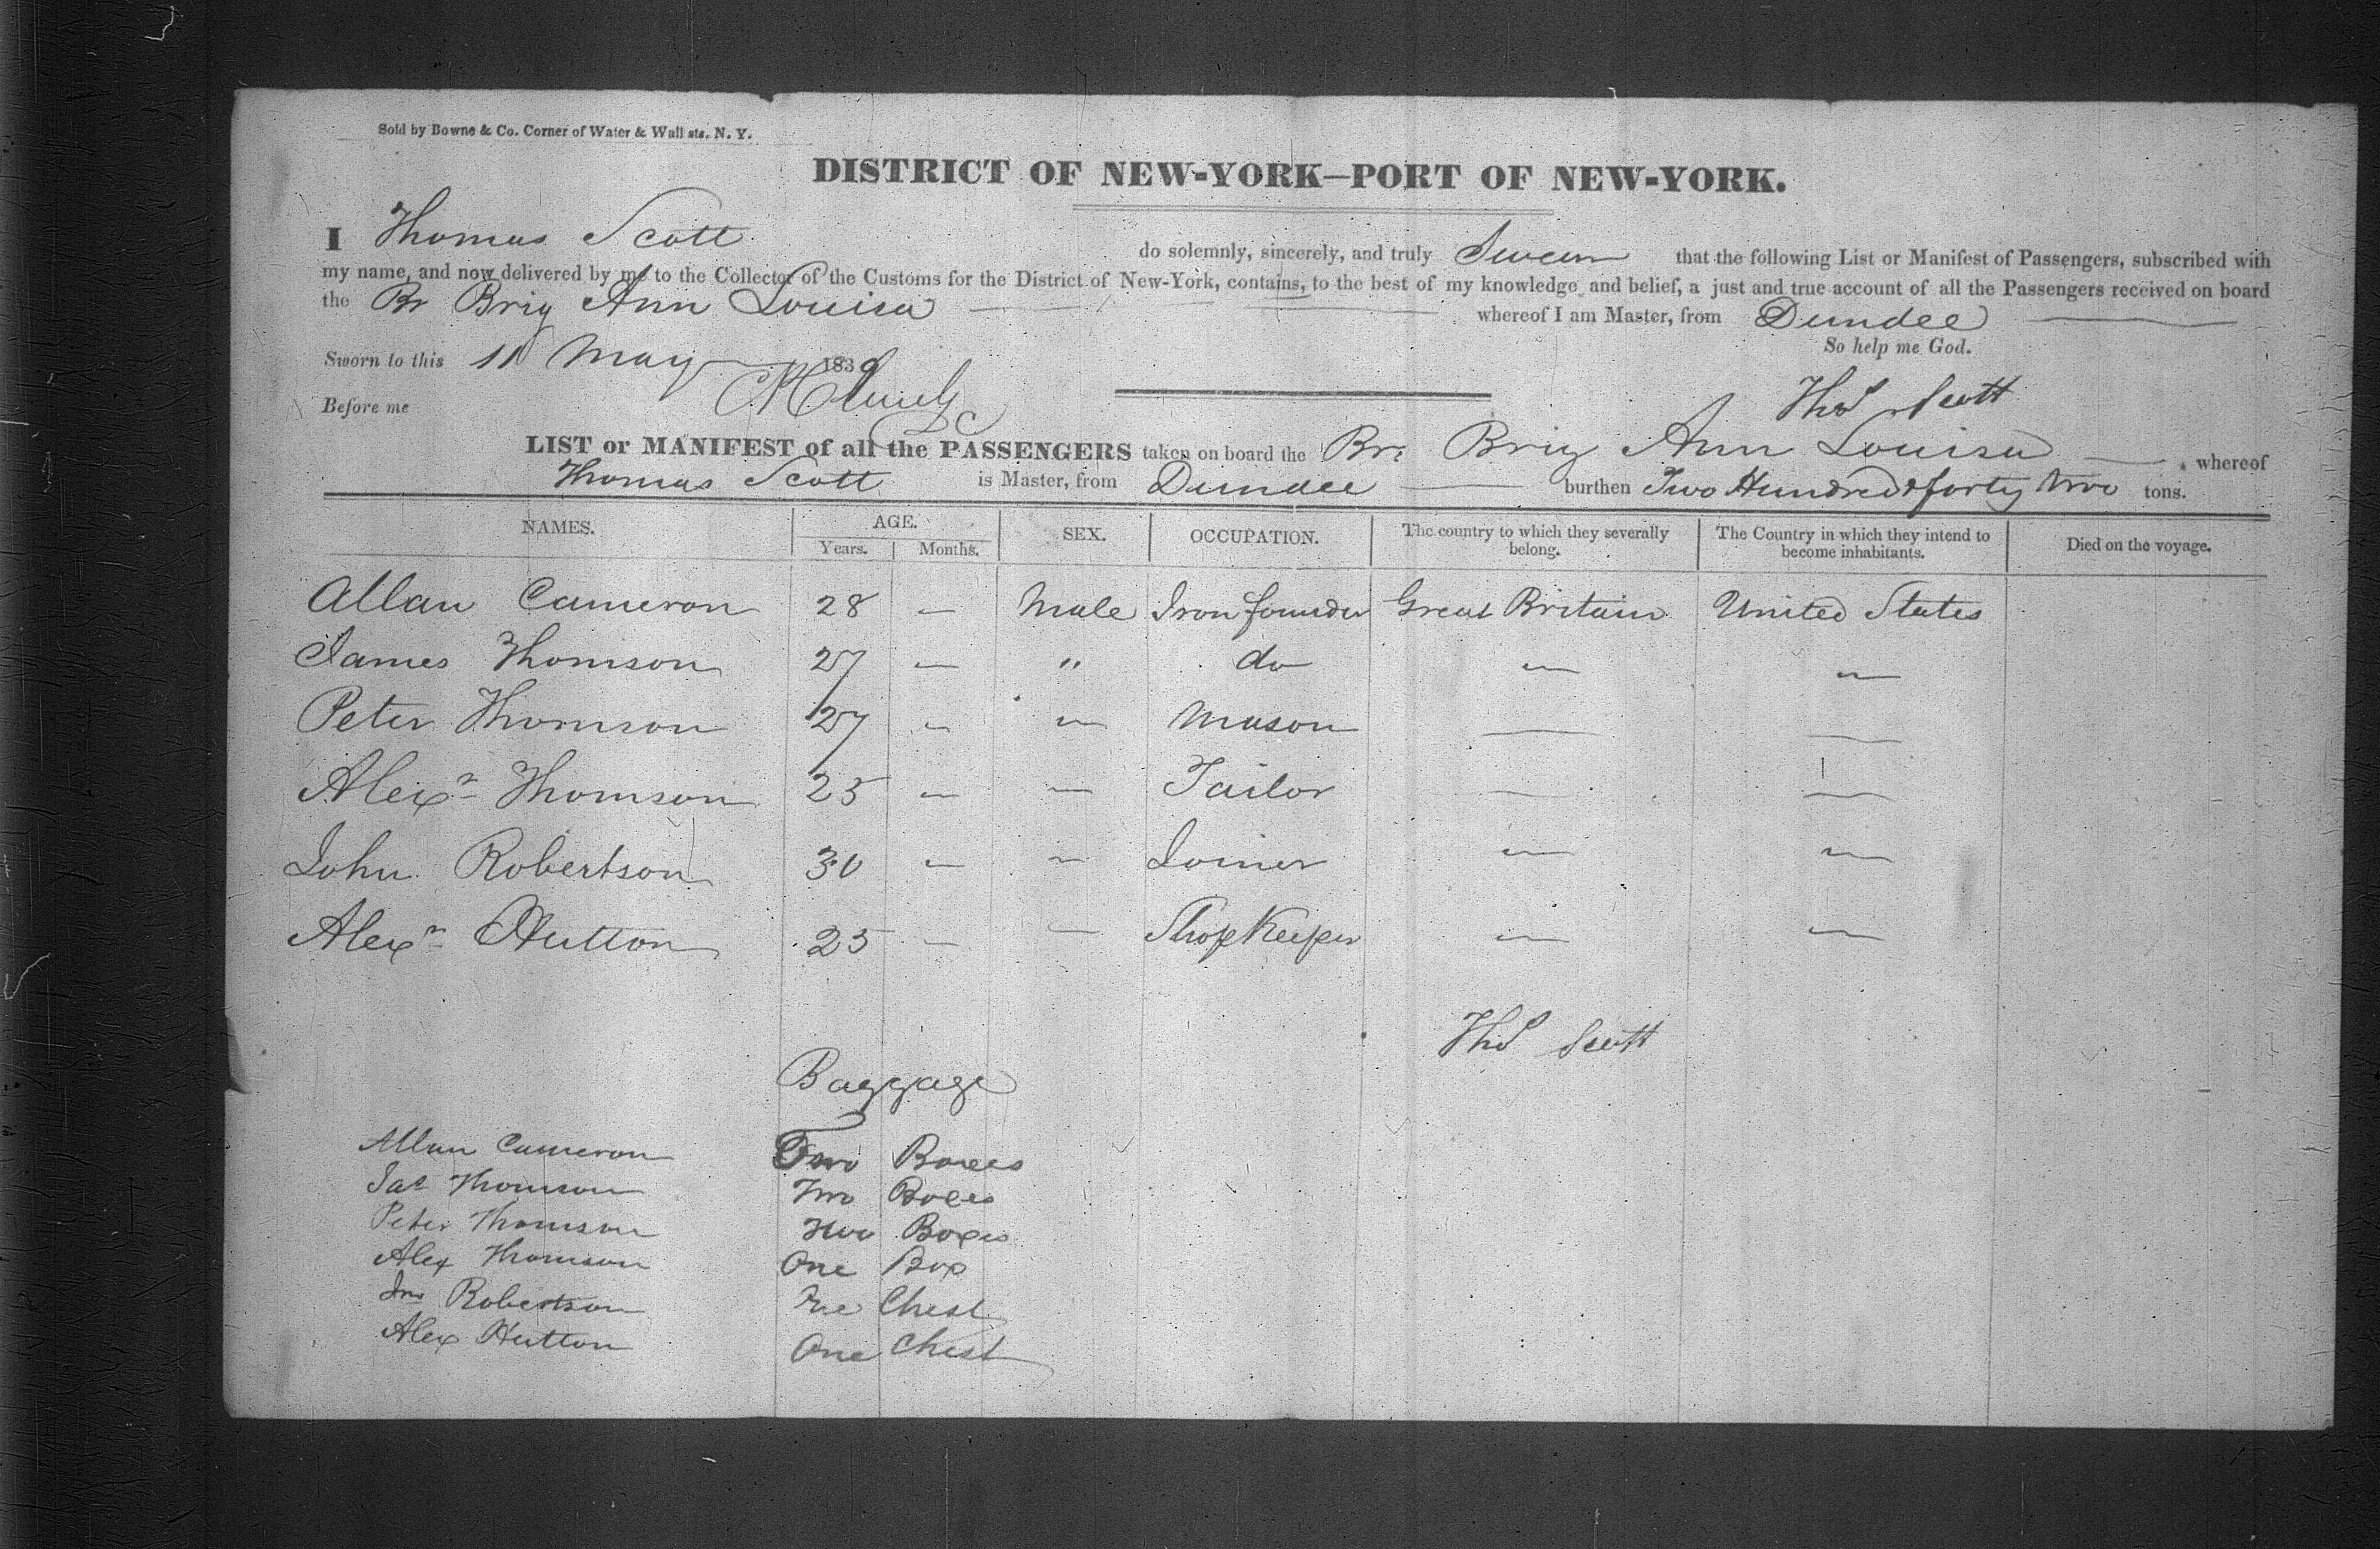 Sold by Bowne & Co. Corner of Water & Wall sts. N. Y.
DISTRICT OF NEW-YORK—PORT OF NEW-YORK.
I Thomas Scott do solemnly, sincerely, and truly Swear that the following List or Manifest of Passengers, subscribed with
my name, and now delivered by me to the Collector of the Customs for the District of New-York, contains, to the best of my knowledge and belief, a just and true account of all the Passengers received on board
the Br Brig Ann Louisa whereof I am Master, from Dundee
So help me God.
Sworn to this 11 May 1839
Thos Scott
Before me
LIST or MANIFEST of all the PASSENGERS taken on board the Br. Brig Ann Louisa, whereof
Thomas Scott is Master, from Dundee burthen Two Hundred & forty two tons.
NAMES. AGE. SEX. OCCUPATION. The country to which they severally belong. The Country in which they intend to become inhabitants. Died on the voyage.
Years. Months.
Allan Cameron 28 — Male Iron founder Great Britain United States
James Thomson 27 — " do — —
Peter Thomson 27 — — Mason — —
Alexr Thomson 25 — — Tailor — —
John Robertson 30 — — Joiner — —
Alexr Hutton 25 — — Shop Keeper — —
Thos Scott
Baggage
Allan Cameron Two Boxes
Jas Thomson Two Boxes
Peter Thomson Two Boxes
Alex Thomson One Box
Jno Robertson One Chest
Alex Hutton One Chest